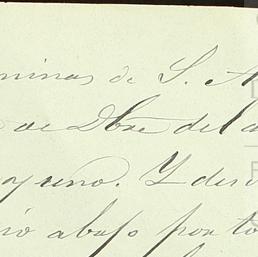 minas de S. A
de Dbre del a
y uno. Y des
rio abajo por to